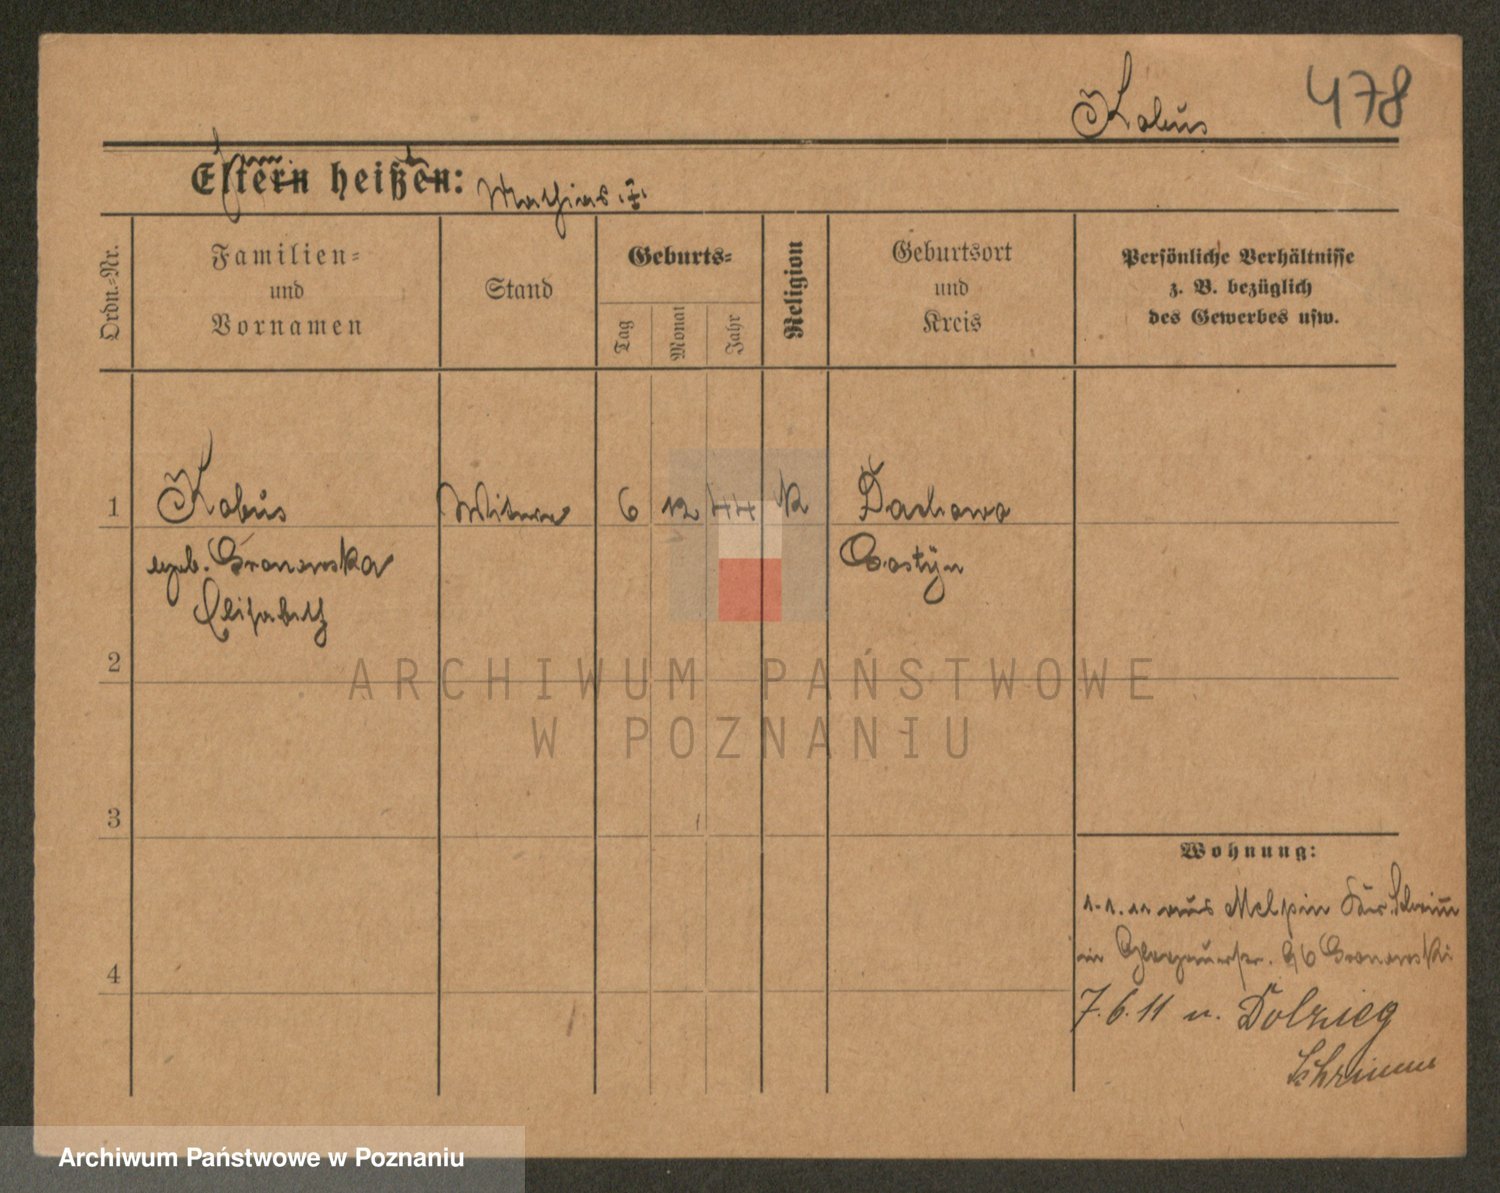 Kabus
478
Eltern heißen: Mathias †.
Ordn.-Nr.
Familien-
und
Vornamen
Stand
Geburts-
Tag
Monat
Jahr
Religion
Geburtsort
und
Kreis
Persönliche Verhältnisse
z. B. bezüglich
des Gewerbes usw.
1 Kabus Witwe 6 12 44 K Dachowo
geb. Gronowska Gostyn
Elisabeth
2
ARCHIWUM PAŃSTWOWE
W POZNANIU
3
Wohnung:
1.1.11 aus Melpin Schrimm
in 96 Gronowski
4
7.6.11 n. Dolzieg
Schrimm
Archiwum Państwowe w Poznaniu